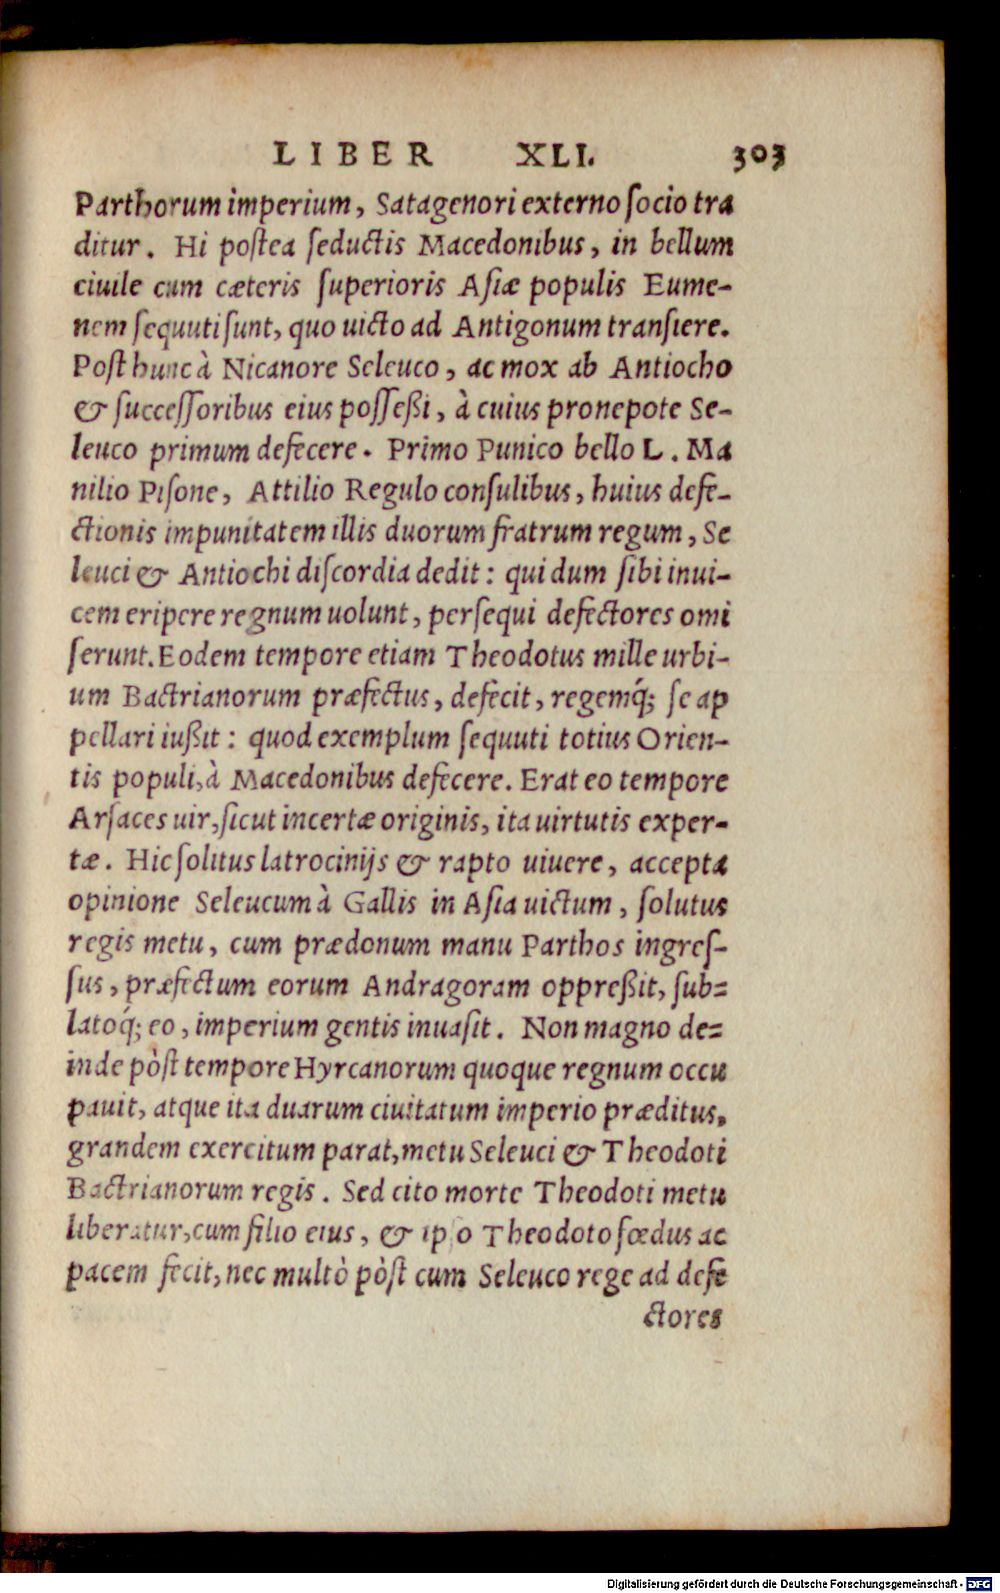 LIBER XLI. 303
Parthorum imperium, Satagenori externo ſocio tra
ditur. Hi poſtea ſeductis Macedonibus, in bellum
ciuile cum cæteris ſuperioris Aſiæ populis Eume-
nem ſequuti ſunt, quo uicto ad Antigonum tranſiere.
Poſt hunc à Nicanore Seleuco, ac mox ab Antiocho
& ſucceſſoribus eius poſſeßi, à cuius pronepote Se-
leuco primum defecere. Primo Punico bello L. Ma
nilio Piſone, Attilio Regulo conſulibus, huius defe-
ctionis impunitatem illis duorum fratrum regum, Se
leuci & Antiochi diſcordia dedit: qui dum ſibi inui-
cem eripere regnum uolunt, perſequi defectores omi
ſerunt. Eodem tempore etiam Theodotus mille urbi-
um Bactrianorum præfectus, defecit, regemq́; ſe ap
pellari iußit: quod exemplum ſequuti totius Orien-
tis populi, à Macedonibus defecere. Erat eo tempore
Arſaces uir, ſicut incertæ originis, ita uirtutis exper-
tæ. Hic ſolitus latrocinijs & rapto uiuere, accepta
opinione Seleucum à Gallis in Aſia uictum, ſolutus
regis metu, cum prædonum manu Parthos ingreſ-
ſus, præfectum eorum Andragoram oppreßit, ſub-
latoq́; eo, imperium gentis inuaſit. Non magno de-
inde pòſt tempore Hyrcanorum quoque regnum occu
pauit, atque ita duarum ciuitatum imperio præditus,
grandem exercitum parat, metu Seleuci & Theodoti
Bactrianorum regis. Sed cito morte Theodoti metu
liberatur, cum filio eius, & ipſo Theodoto fœdus ac
pacem fecit, nec multò pòſt cum Seleuco rege ad defe
ctores
Digitalisierung gefördert durch die Deutsche Forschungsgemeinschaft - DFG